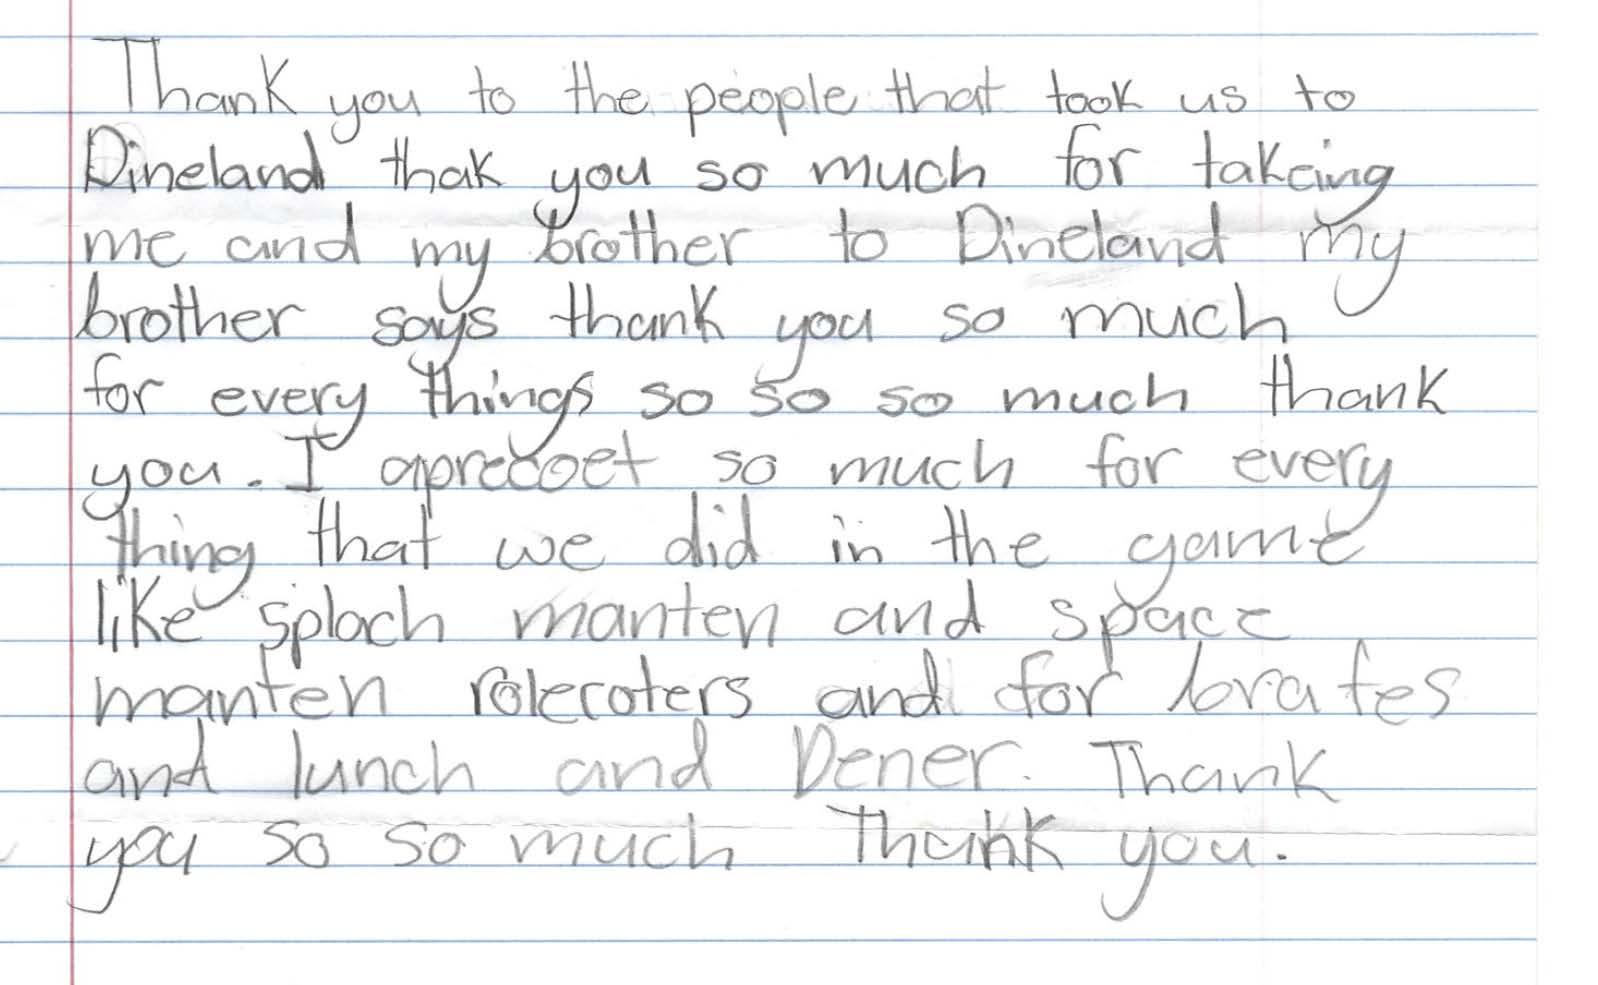 Thank you to the people that took us to
Dineland thak you so much for takcing
me and my brother to Dineland my
brother says thank you so much
for every things so so so much thank
you. I aprecoet so much for every
thing that we did in the game
like sploch manten and space
manten rolecoters and for brafes
and lunch and Dener. Thank
you so so much Thank you.